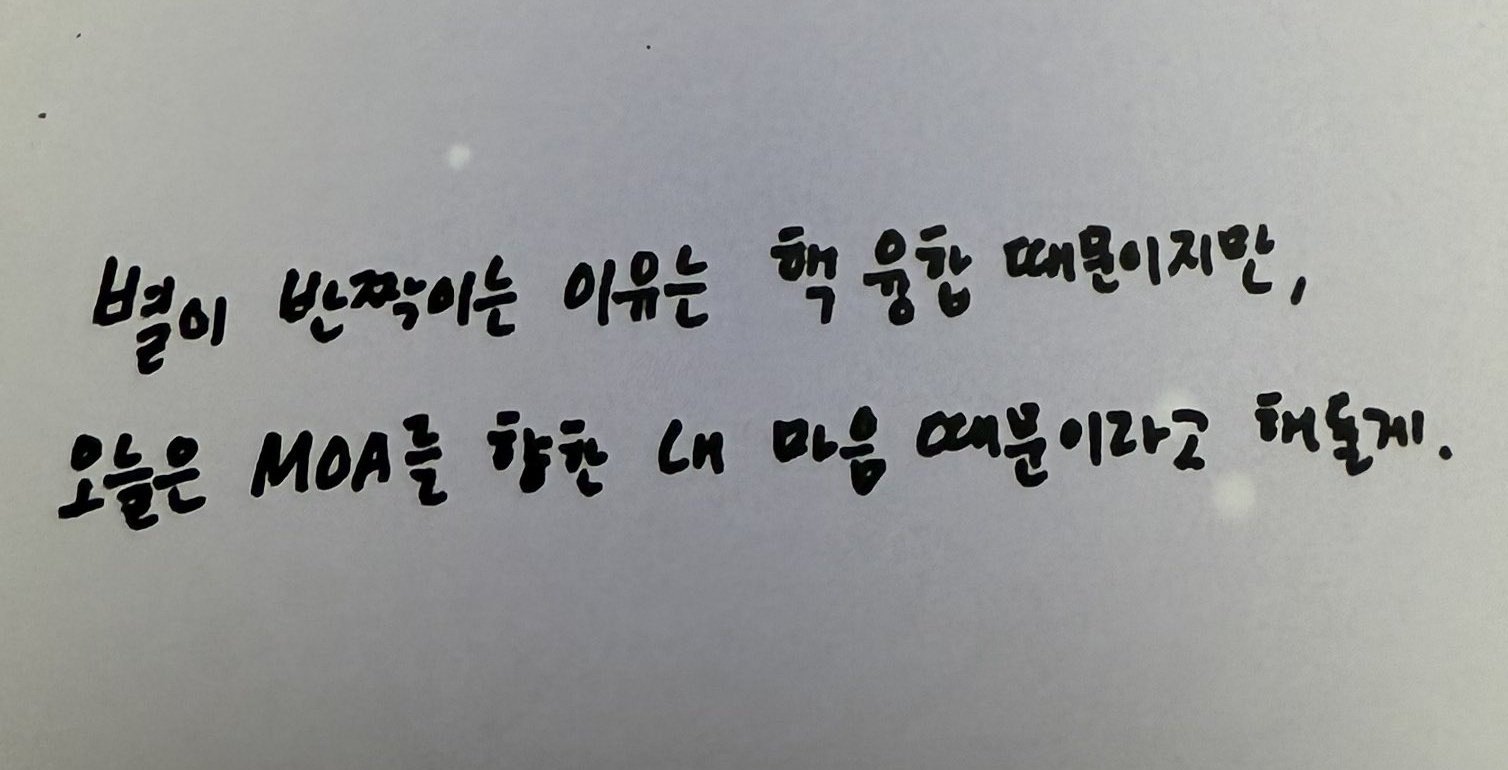 별이 반짝이는 이유는 핵 융합 때문이지만,
오늘은 MOA를 향한 내 마음 때문이라고 해둘게.